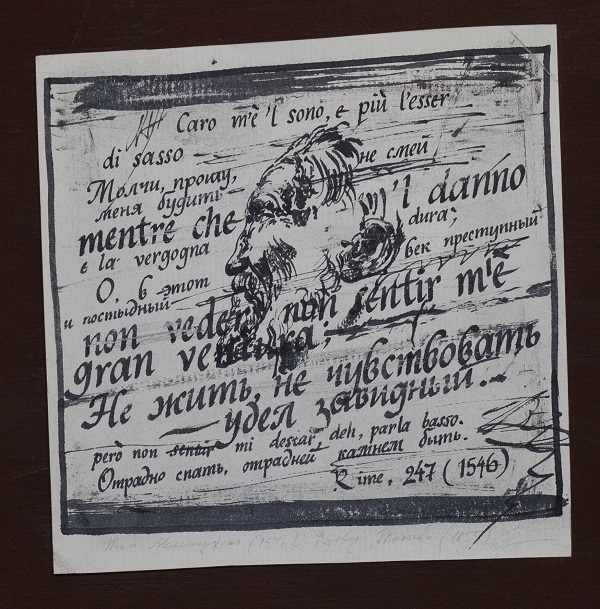 Caro m'è 'l sono, e più l'esser
di sasso
не смей
Молчи, прошу,
меня будить
mentre che
m'l danno
e la vergogna
dura;
век преступный
О, в этом
и постыдный
non veder, non sentir m'è
gran ventura;
Не жить, не чувствовать
— удел завидный...
però non sentir mi destar, deh, parla basso.
Отрадно спать, отрадней камнем быть.
Rime, 247 (1546)